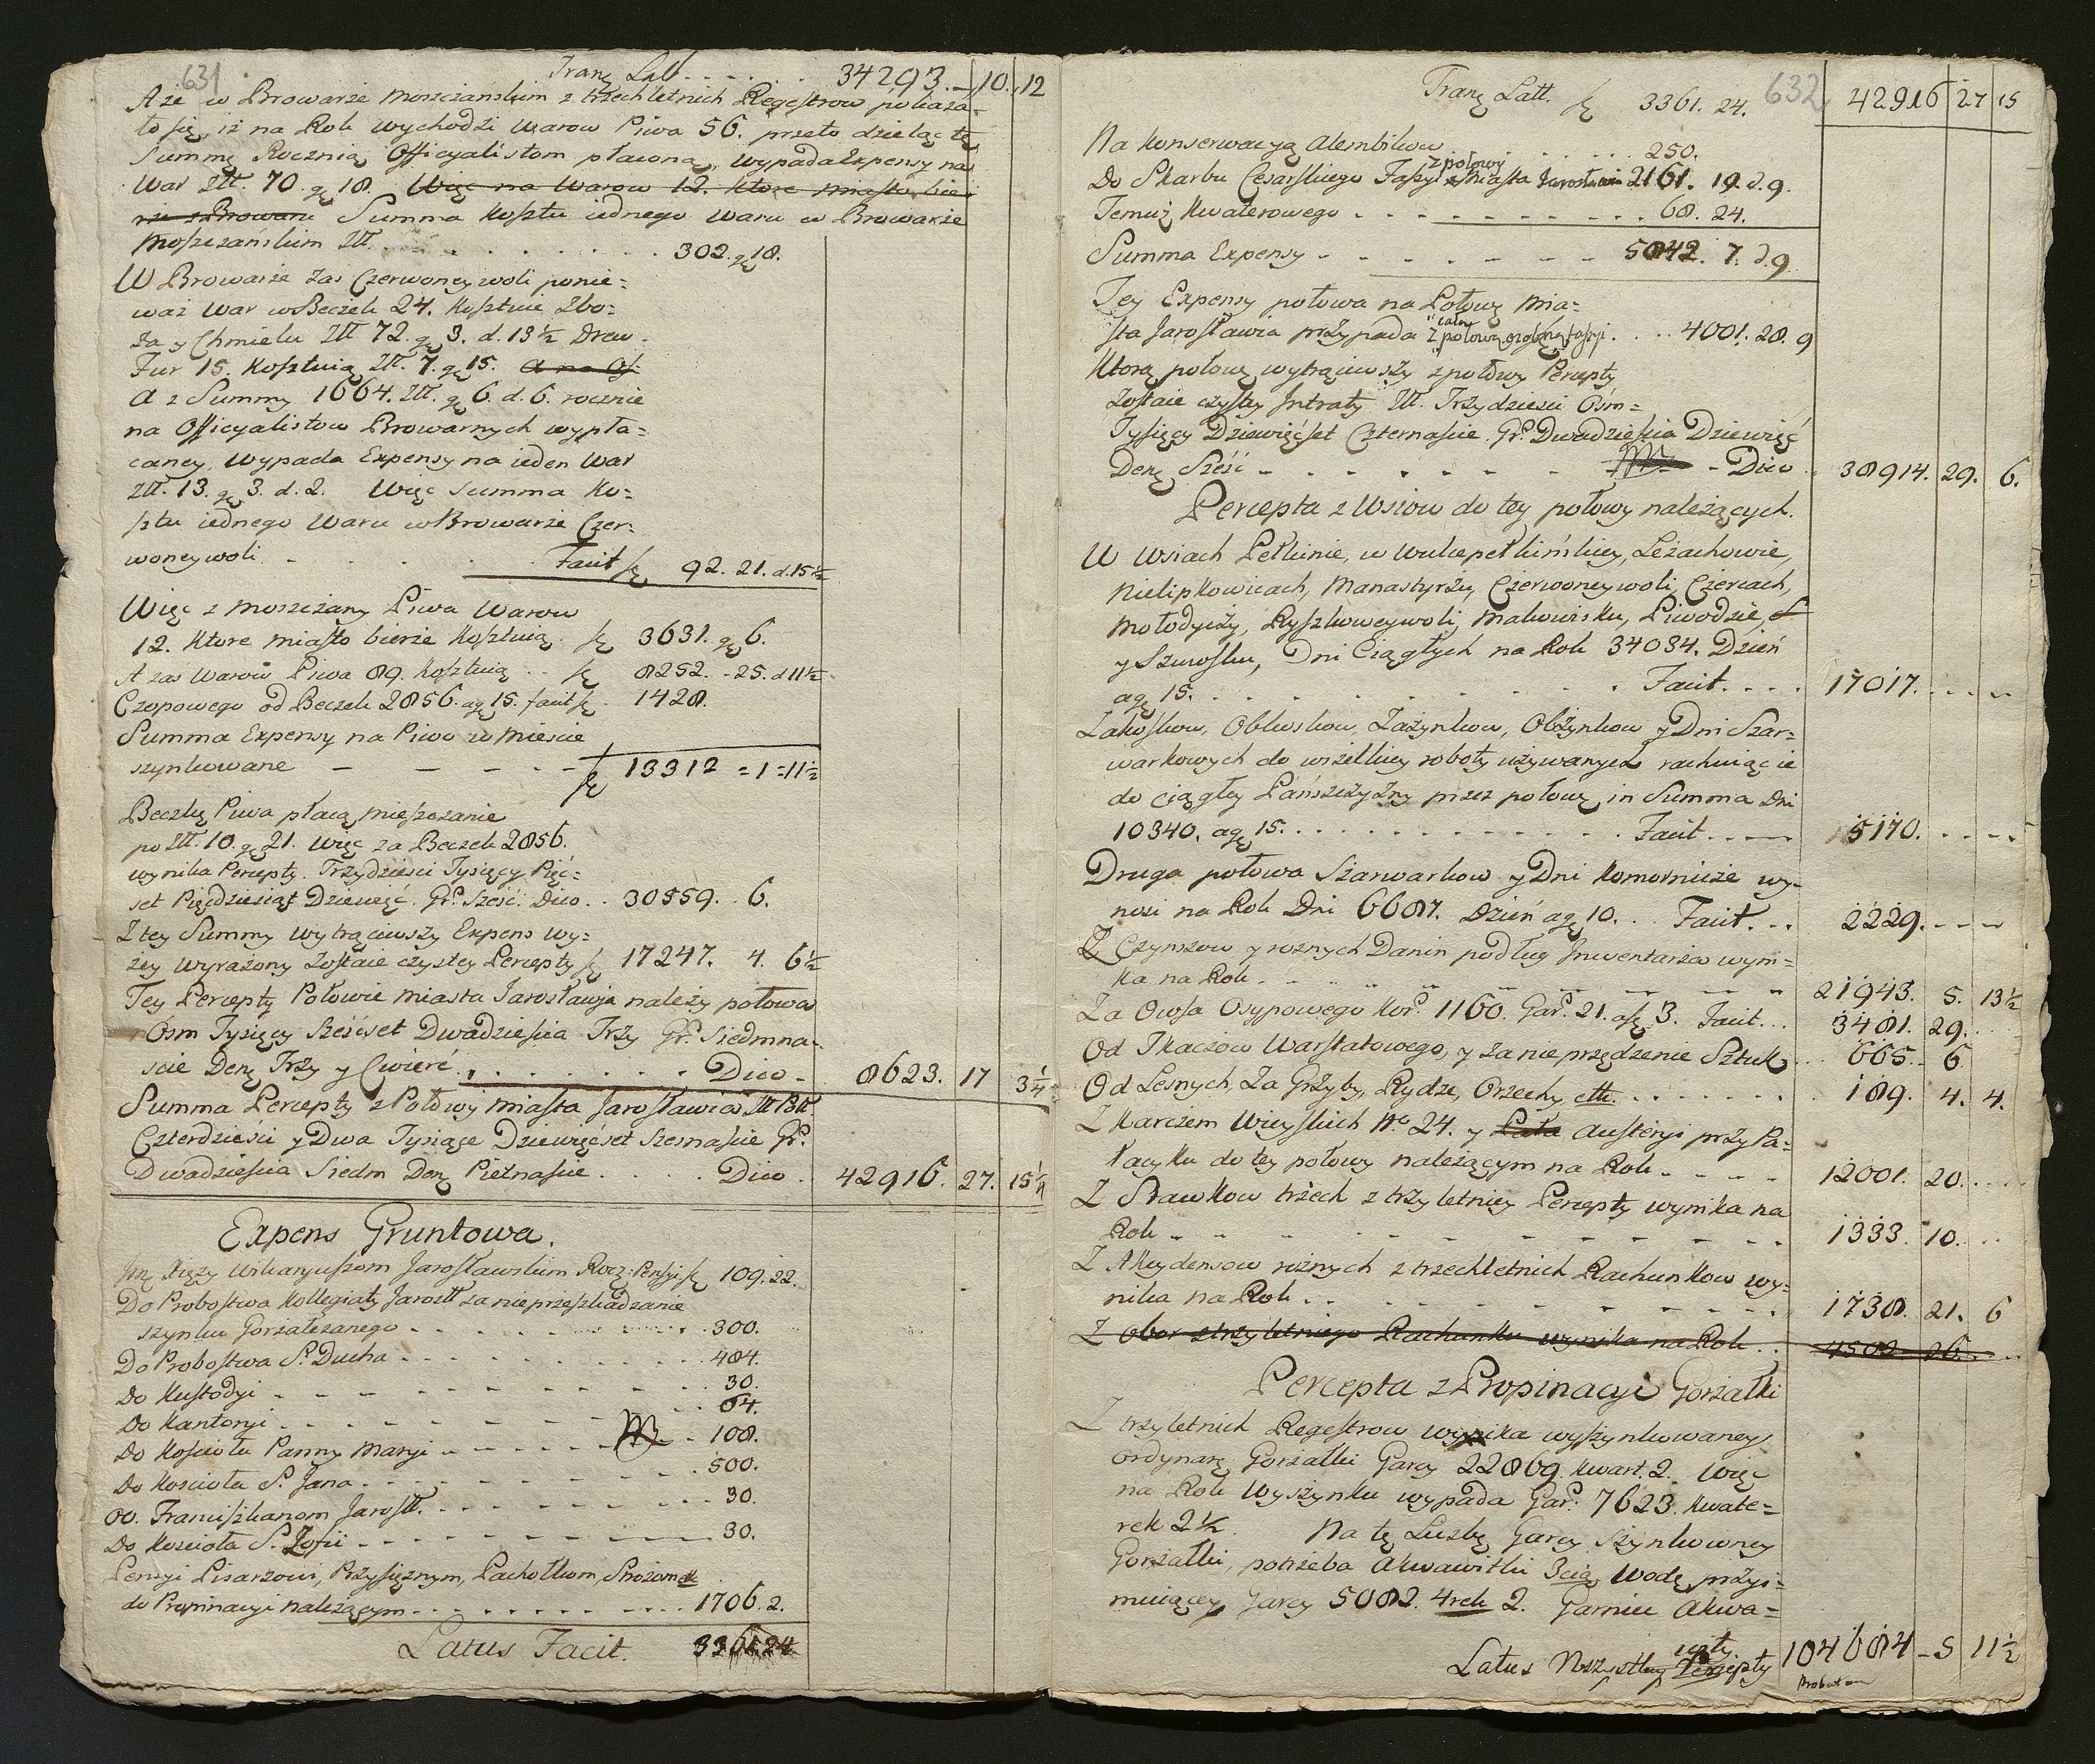 631
Tranz Latt. . . . . 34293. - 10. 12
A że w Browarze moszczanskim z trzechletnich Regestrow pokaza-
ło się, iż na Rok wychodzi Warow Piwa 56. przeto dzieląc tę
Summę Rocznią Officyalistom płaconą, wypada Expensy na
War Złł. 70. gę 18. Więc na Warow 12. ktore miasto bie-
rze z Browaru Summa kosztu iednego Waru w Browarze
Moszczańskim Złł. . . . . . . . . . 302. gę 18.
W Browarze zas Czerwoney woli ponie=
waż War w Beczek 24. kosztuie Zbo=
ża y Chmielu Złł 72. gę 3. d. 13½ Drew
Fur 15. kosztuią Złł. 7. gę 15. a na Of-
A z Summy 1664. Złł. gę 6. d. 6. rocznie
na Officyalistow Browarnych wypła=
caney, Wypada Expensy na ieden War
Złł. 13. gę 3. d. 2. Więc Summa Ko=
sztu iednego Waru w Browarze Czer-
woney woli . . . . . Facit fę 92. 21. d. 15½
Więc z moszczany Piwa Warow
12. Ktore miasto bierze kosztuią. fę 3631. gę 6.
A zas Warow Piwa 89. kosztuią . . fę 8252. - 25. d 11½
Czopowego od Beczek 2856. agę 15. facit fę . 1428.
Summa Expensy na Piwo w mieście
szynkowane - - - - - fę 13312 = 1 = 11½
Beczkę Piwa płacą mieszczanie
po Złł. 10. gę 21. Więc za Beczek 2856.
wynika Percepty. Trzydzieści Tysięcy Pięć=
set Pięćdziesiąt Dziewięć. Gr. Sześć. Dico. . 30559. . 6.
Z tey Summy wytrąciwszy Expens wy=
żey wyrażony zostaie czystey Percepty fę 17247. 4. 6½
Tey Percepty Połowie miasta Jarosławia należy połowa
Ośm Tysięcy Sześćset Dwadzieścia Trzy Gr. Siedmna-
ście Denę Trzy y Cwierć . . . . . . . Dico - 8623. 17 3¼
Summa Percepty z Połowy miasta Jarosławia Złł Pol
Czterdzieści y Dwa Tysiące Dziewięćset Szesnaście Gr.
Dwadzieścia Siedm Denę Pietnaście . . . . Dico . 42916. 27. 15¼
Expens Gruntowa.
Xięży Wikaryuszom Jarosławskim Rocz: Pensyi fę 109. 22.
Do Probostwa Kollegiaty Jarosł za nieprzeszkadzanie
szynku Gorzałczanego - - - - . . . 300.
Do Probostwa S. Ducha . - - - - . . . 484.
Do Kustodyi - - - - - - - . . . 30.
Do Kantoryi - - - - - - - . . . 64.
Do Kościoła Panny Maryi - - - - - - - 108.
Do Kościoła S. Jana . - - - - - - . 500.
OO. Franciszkanom Jarosł. - - - - - - . . . 30.
Do Kościoła S. Zofii - - - - - - 30.
Pensyi Pisarzowi, Przysięznym, Pachołkom, Strożom etc
do Propinacyi należącym - - . . . . . . . . 1706. 2.
Latus Facit. 3361 24
632
Tranz Latt. fę 3361. 24. 42916 27 15
Na konserwacyą Alembikow . . . . . . . 250.
Do Skarbu Cesarskiego Fassyi z połowy Miasta Jarosławia 2161. 19. d. 9.
Temuż Kwaterowego . - - - - - - - - . . 68. 24.
Summa Expensy - - - - - - - 5842. 7. d. 9
Tey Expensy połowa na Połowę Mia=
sta Jarosławia przypada z całą połową osobną fassyi. . . . 4001. 28. 9
Ktorą połowę wytrąciwszy z połowy Percepty
Zostaie czystey Intraty Złł. Trzydzieści Ośm=
Tysięcy Dziewięćset Czternaście. Gr. Dwadzieścia Dziewięć
Denę Sześć - - - - - - - Dico . 38914. 29. 6.
Percepta z Wsiow do tey połowy należących.
W Wsiach Pełkinie, w Wulcepełkińskiey, Leżachowie,
Nielipkowicach, Manastyrzu, Czerwoneywoli, Czercach,
Mołodyczy, Ryszkoweywoli, Makowisku, Piwodzie,
y Szurosku, Dni Ciągłych na Rok 34034. Dzień
agę 15. . . . . . . . . . . Facit. . . . 17017. . . . -
Zakoskow, Obkoskow, Zażynkow, Obżynkow y Dni Szar=
warkowych do wszelkiey roboty używanych rachuiąc ie
do ciągłey Pańszczyzny przez połowę in Summa Dni
10340. agę 15. . . . . . . . . . . Facit. . - - 5170. . . - -
Druga połowa Szarwarkow y Dni Komornicze wy-
nosi na Rok Dni 6687. Dzień agę 10. . . Facit. . . 2229. - - -
Z Czynszow y roznych Danin podług Inwentarza wyni=
ka na Rok . - . . - - - - - - - 21943. 5. 13½
Za Owsa Osypowego Kor. 1160. Gar. 21. afę 3. Facit. . . 3481. 29. . .
Od Tkaczow Warstatowego, y za nie przędzenie Sztuk . . . 665. - 6
Od Lesnych za Grzyby, Rydze, Orzechy, etc. . . . . . . . . 189. 4. 4.
Z Karczem Wieyskich N 24. y Lata Austeryi przy Pa=
łacyku do tey połowy należącym na Rok - - - - 12001. 20. . . .
Z Stawkow trzech z trzyletniey Percepty wynika na
Rok - - - - - - - - - - 1333. 10. . . .
Z Akcydensow roznych z trzechletnich Rachunkow wy-
nika na Rok . . - - - - - - - - - 1738. 21. 6
Z Obor z trzyletniego Rachunku wynika na Rok . . 4502. 26. . . .
Percepta z Propinacyi Gorzałki
Z trzyletnich Regestrow wynika wyszynkowaney
ordynarę Gorzałki Garcy 22869. kwart. 2. Więc
na Rok Wyszynku wypada Gar. 7623. kwate=
rek 2½. Na tę Liczbę Garcy szynkowney
Gorzałki, potrzeba Akwawitki 3cią wodę przyi=
muiącey Garcy 5082. 4rek 2. Garniec Akwa=
Latus Wszystkiey Percepty 104684 - 5 11½